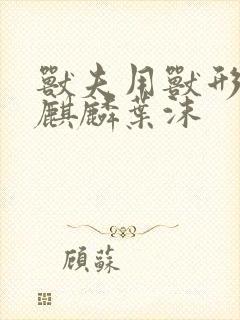 獸夫用獸形
麒麟葉沫
顾蘇